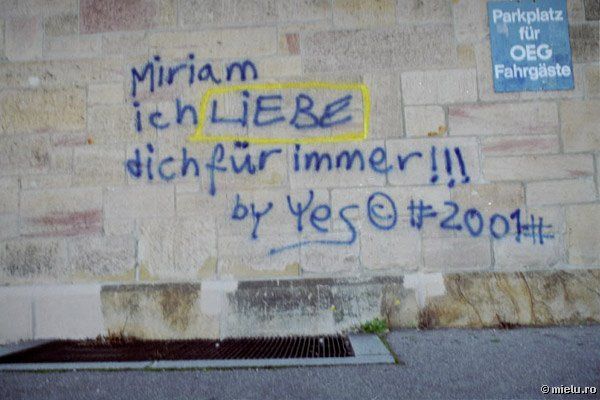 Parkplatz
für
OEG
Fahrgäste
Miriam
ich LiEBE
dich für immer!!!
by Yes © #2001#
© mielu.ro